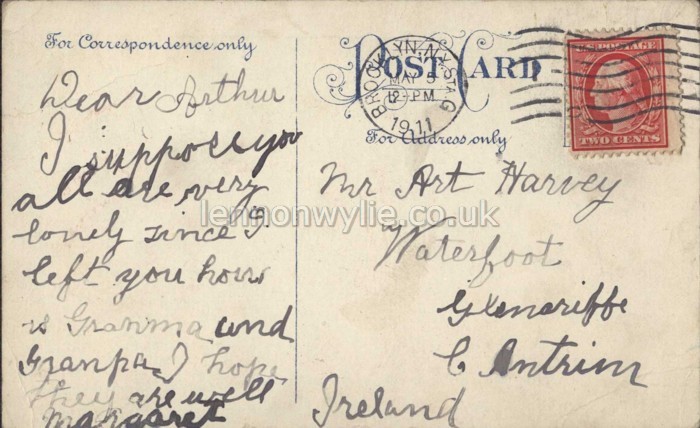 For Correspondence only
Dear Arthur
I suppose you
all are very
lonely since I
left you how
is Granma and
Granpa I hope
they are well
Margaret
POST CARD
BROOKLYN, N.Y. STA. G
MAY 5
12-PM
1911
U.S. POSTAGE
TWO CENTS
For Address only
Mr Art Harvey
Waterfoot
Glenariffe
C Antrim
Ireland
lennonwylie.co.uk